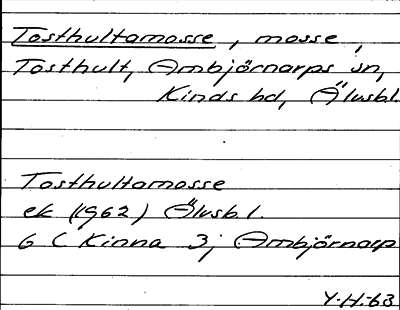 Tosthultamosse, mosse,
Tosthult, Ambjörnarps sn,
Kinds hd, Älvsbl.
Tosthultamosse
ek (1962) Älvsbl.
6 C Kinna 3j Ambjörnarp
Y.H.-63